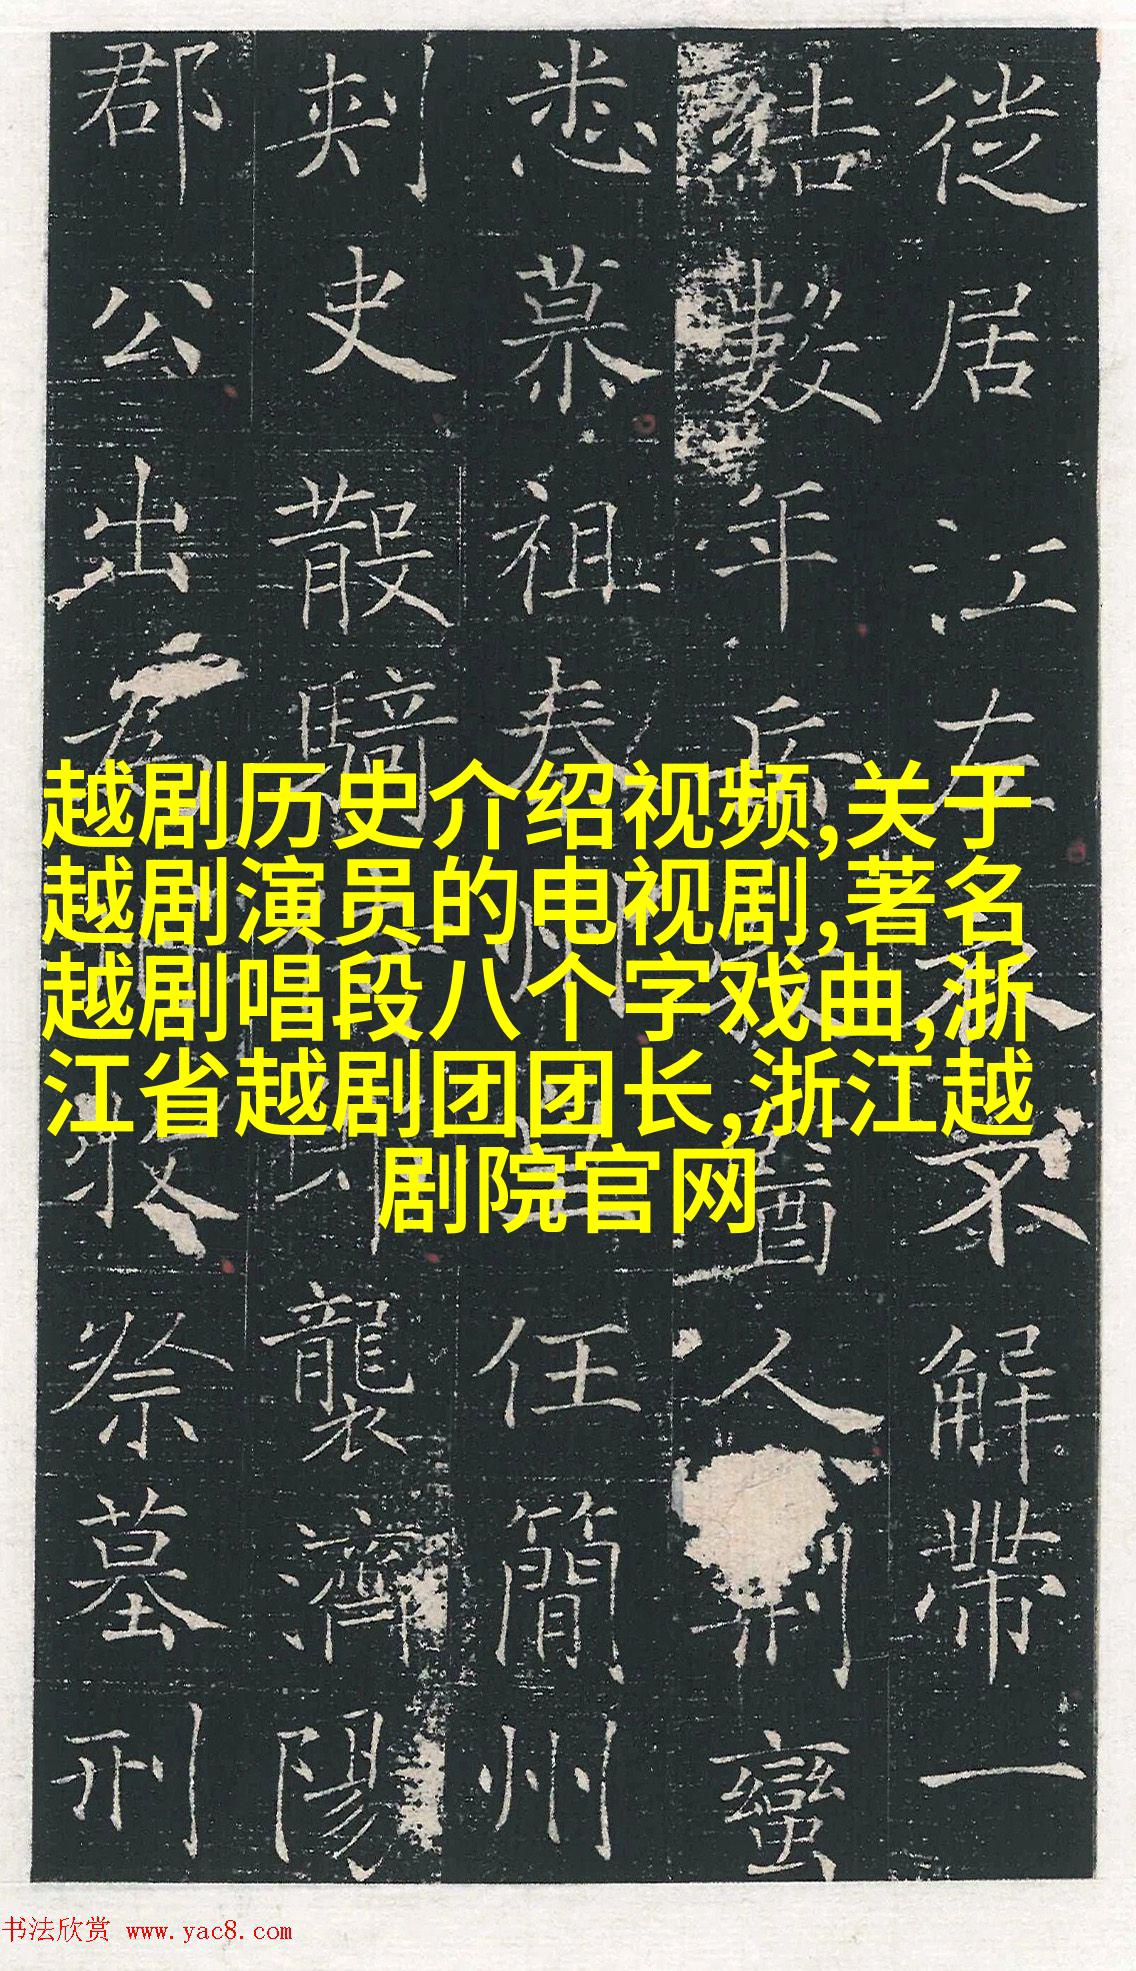 越剧历史介绍视频,关于
越剧演员的电视剧,著名
越剧唱段八个字戏曲,浙
江省越剧团团长,浙江越
剧院官网
徙居江左不解帶一
結數年酋人制蠻
悉慕祖任簡州
刺史散騎襲濟陽
郡公出為祭墓刑
书法欣赏 www.yac8.com